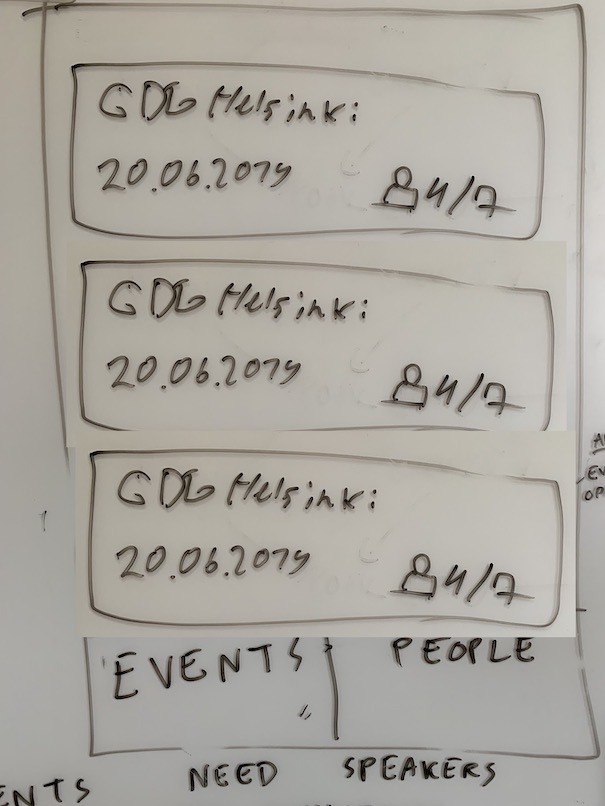 GDG Helsinki
20.06.2019
4/7
GDG Helsinki
20.06.2019
4/7
GDG Helsinki
20.06.2019
4/7
EVENTS
PEOPLE
NEED SPEAKERS